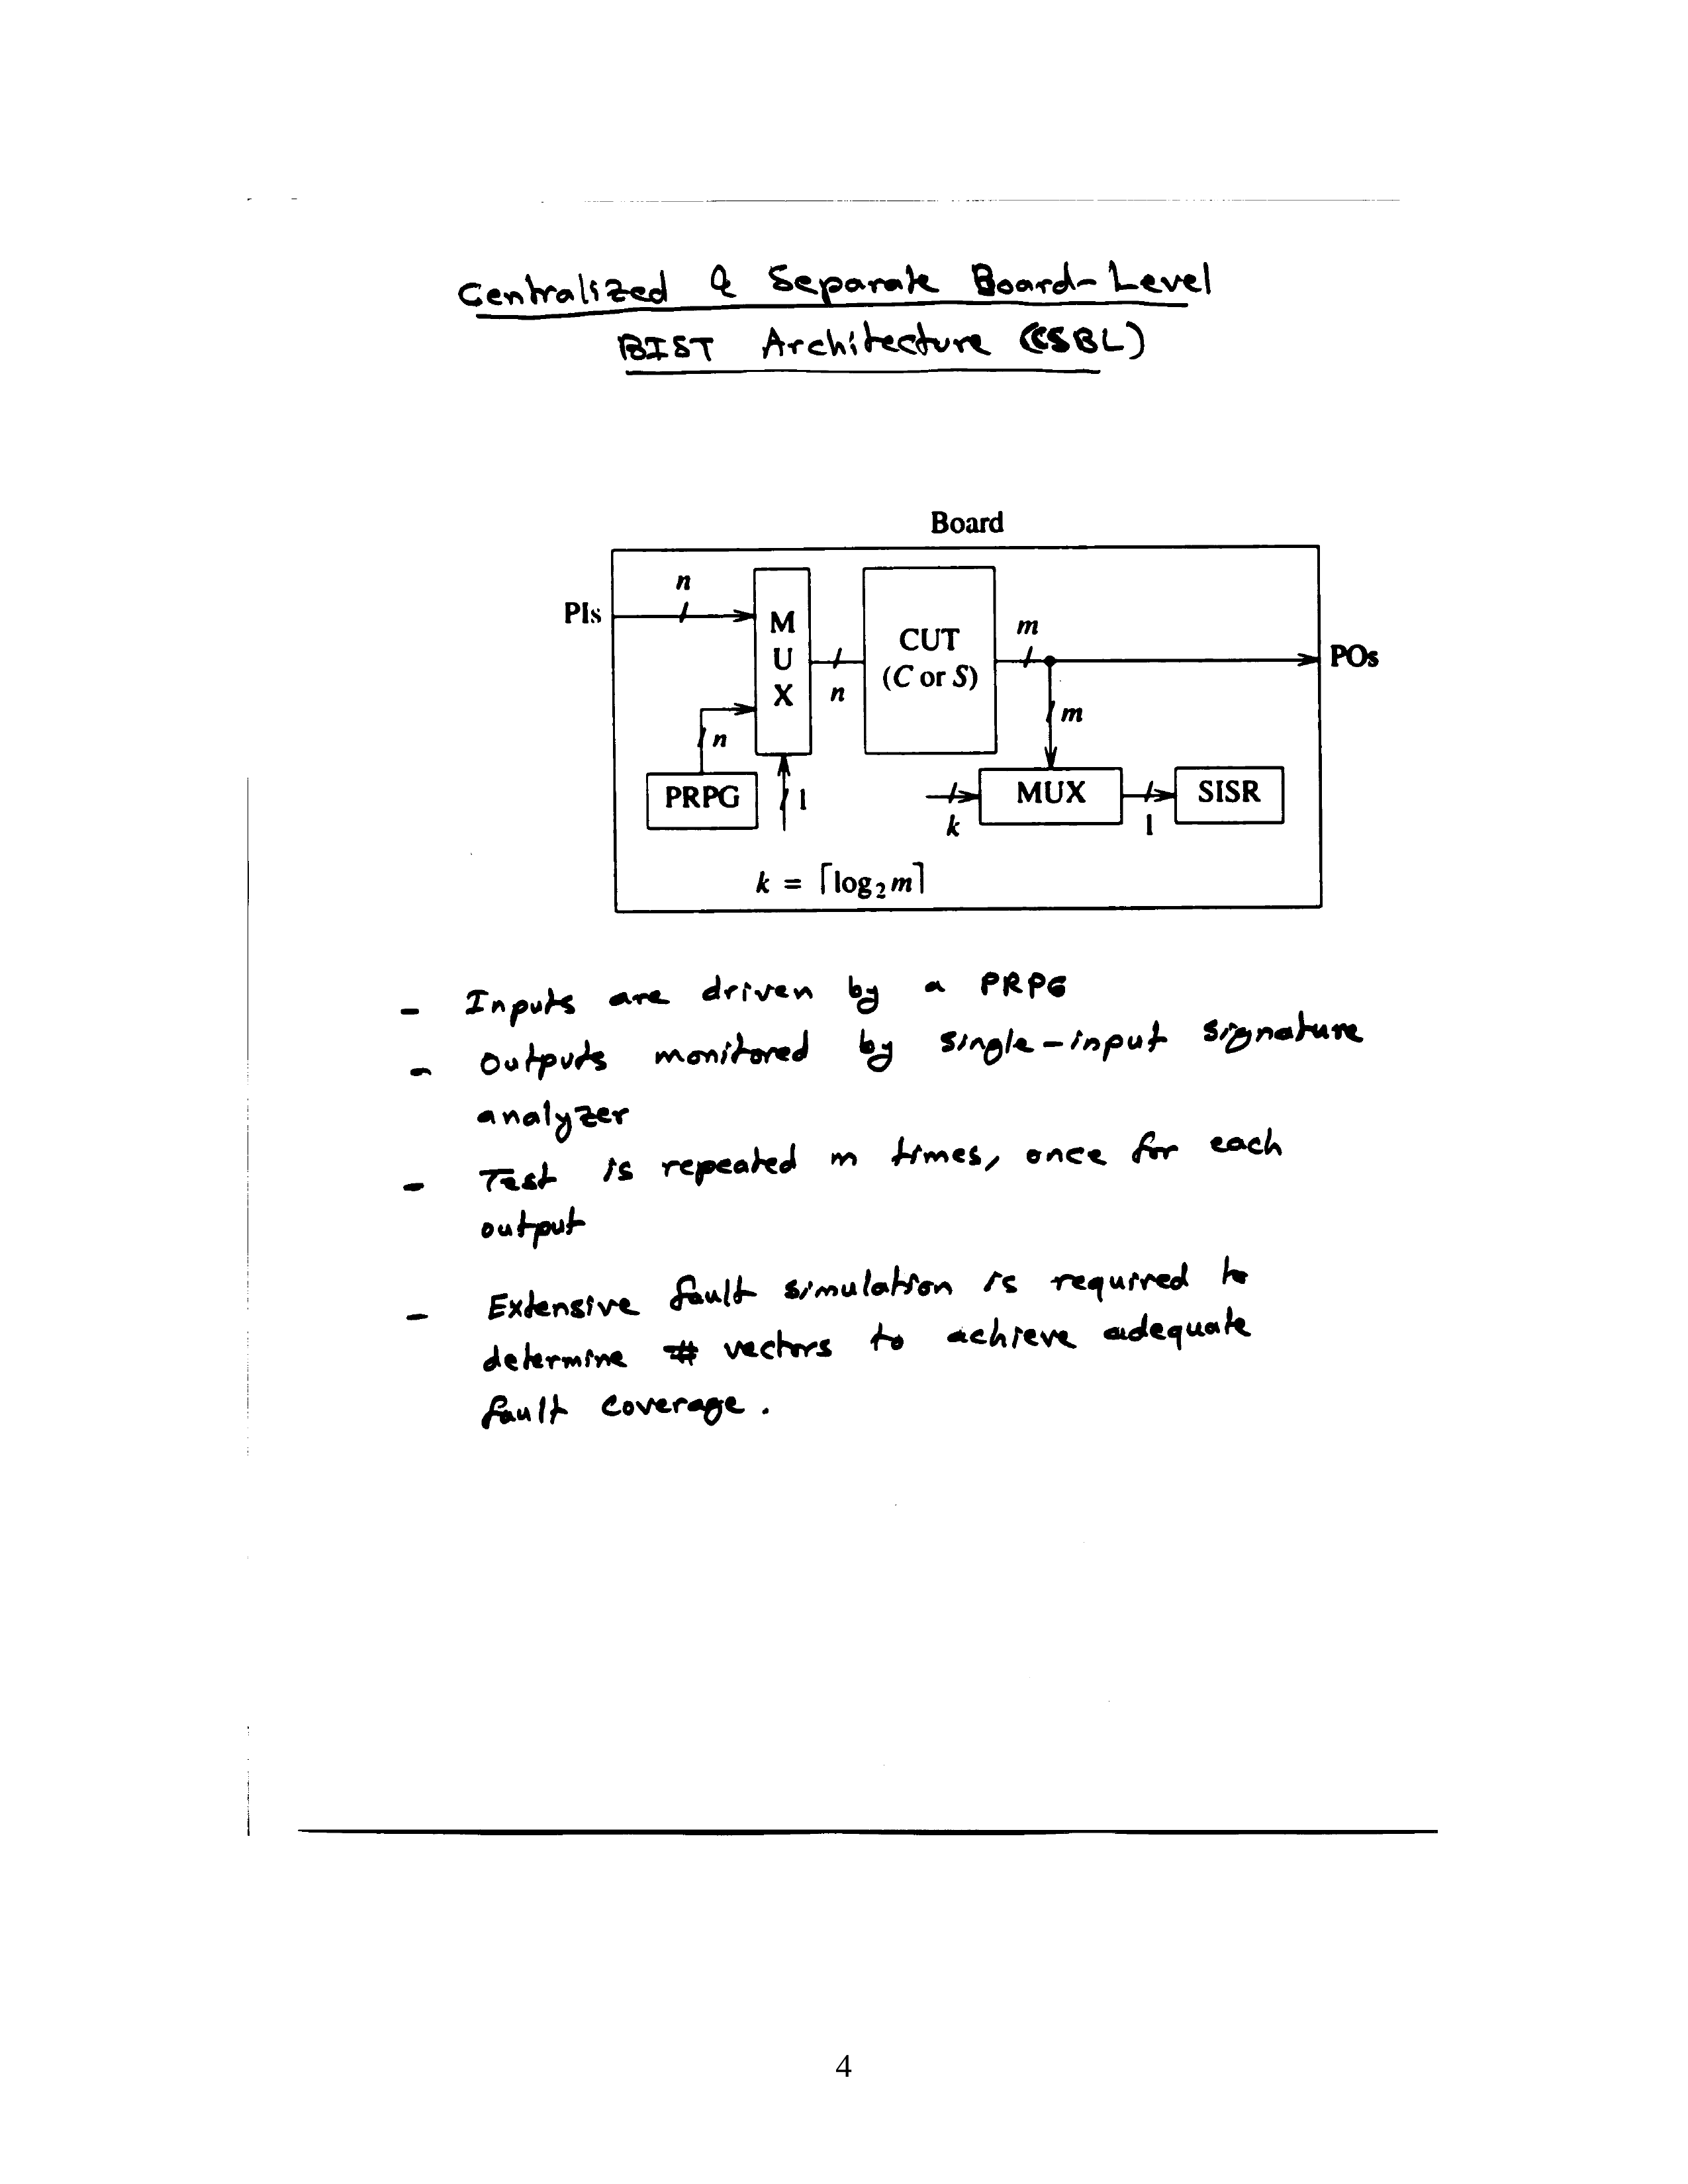 Centralized & Separate Board-Level
BIST Architecture (CSBL)
Board
PIs
n
M
U
X
n
CUT
(C or S)
m
POs
m
n
PRPG
1
k
MUX
1
SISR
k = ⌈log₂m⌉
- Inputs are driven by a PRPG
- Outputs monitored by single-input signature
analyzer
- Test is repeated m times, once for each
output
- Extensive fault simulation is required to
determine # vectors to achieve adequate
fault coverage.
4